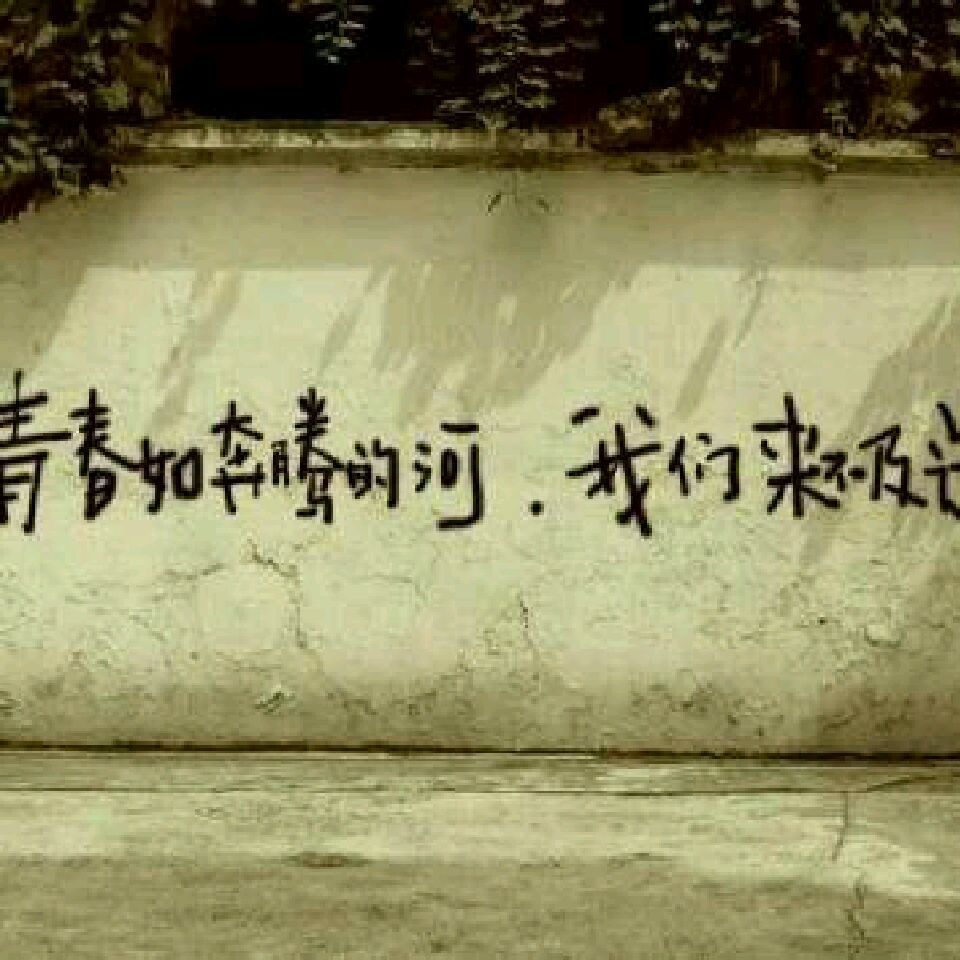 青春如奔腾的河.我们来不及